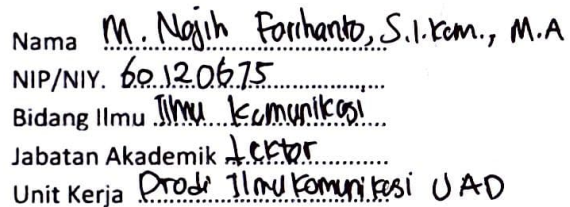 Nama M. Najih Farihanto, S.I.Kom., M.A
NIP/NIY. 60120675
Bidang Ilmu Ilmu Komunikasi
Jabatan Akademik Lektor
Unit Kerja Prodi Ilmu Komunikasi UAD